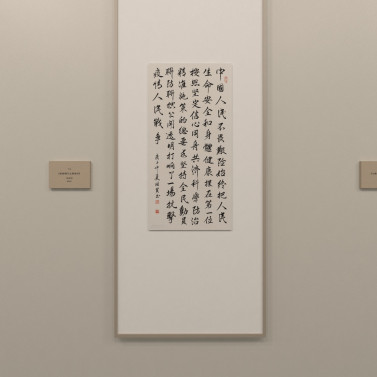 中國人民不畏艱險始終把人民
生命安全和身體健康擺在第一位
按照堅定信心同舟共濟科學防治
精准施策的總要求堅持全民動員
聯防聯控公開透明打響了一場抗擊
疫情人民戰爭